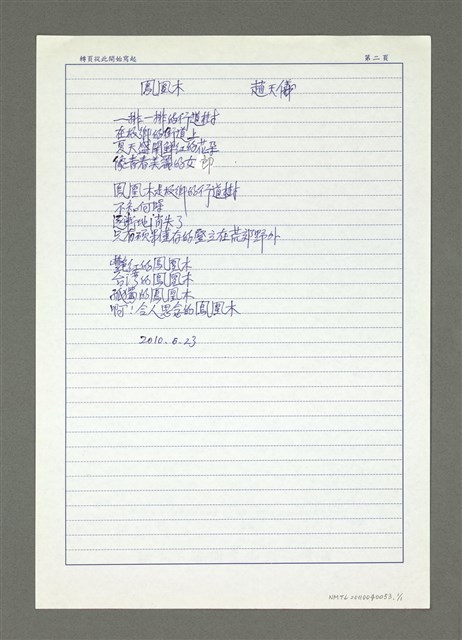 轉頁從此開始寫起
第二頁
鳳凰木 趙天儀
一排一排的行道樹
在故鄉的街道上
夏天盛開鮮紅的花朵
像青春美麗的女郎
鳳凰木是故鄉的行道樹
不知何時
逐漸地消失了
只有碩果僅存的豎立在荒郊野外
艷紅的鳳凰木
台灣的鳳凰木
孤獨的鳳凰木
啊!令人思念的鳳凰木
2010.6.23